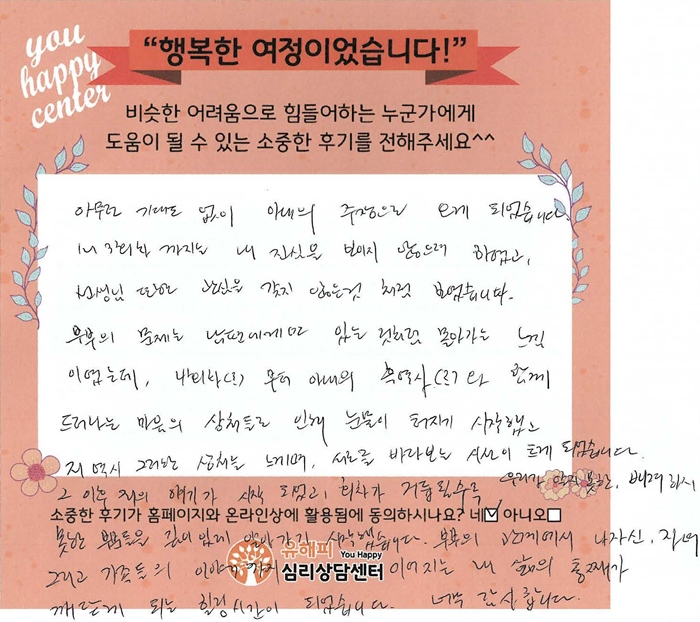 you
happy
center
“행복한 여정이었습니다!”
비슷한 어려움으로 힘들어하는 누군가에게
도움이 될 수 있는 소중한 후기를 전해주세요^^
아무런 기대도 없이 아내의 주장으로 오게 되었습니다.
1~3회차 까지는 내 진심을 보이지 않으려 하였고,
선생님 또한 관심을 갖지 않는것 처럼 보였습니다.
부부의 문제는 남편에게만 있는 것처럼 몰아가는 느낌
이었는데, 4회차(?) 부터 아내의 흑역사(?)와 함께
드러나는 마음의 상처들로 인해 눈물이 터지기 시작했고
저 역시 그러한 상처를 느끼며, 서로를 바라보는 시선이 트게 되었습니다.
그 이후 저의 얘기가 시작 되었고, 회차가 거듭될수록 우리가 알지 못한, 배려하지
소중한 후기가 홈페이지와 온라인상에 활용됨에 동의하시나요? 네☑ 아니오□
못한 부분들을 깊이있게 알아가기 시작했습니다. 부부의 관계에서 나자신, 자녀
유해피 You Happy
심리상담센터
그리고 가족들의 이야기까지 이어지는 내 삶의 통째가
깨닫게 되는 힐링시간이 되었습니다. 너무 감사합니다.